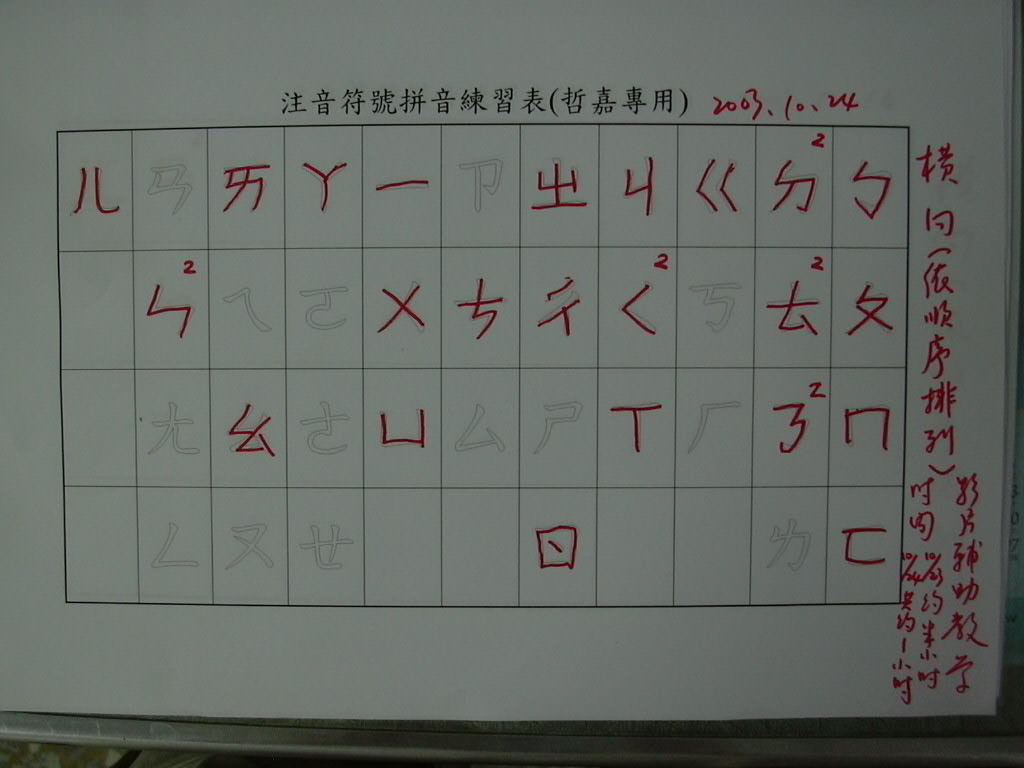 注音符號拼音練習表(哲嘉專用) 2003.10.24
ㄦ ㄢ ㄞ ㄚ ㄧ ㄗ ㄓ ㄐ ㄍ ㄉ 2 ㄅ
ㄣ 2 ㄟ ㄛ ㄨ ㄘ ㄔ ㄑ 2 ㄎ ㄊ 2 ㄆ
ㄤ ㄠ ㄜ ㄩ ㄙ ㄕ ㄒ ㄏ ㄋ 2 ㄇ
ㄥ ㄡ ㄝ ㄖ ㄌ ㄈ
橫向(依順序排列)
影片輔助教学
时间 10/23约半小时
10/24共约1小时